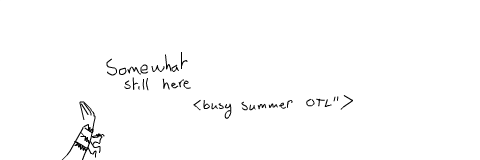 Somewhat
still here
<busy summer OTL">